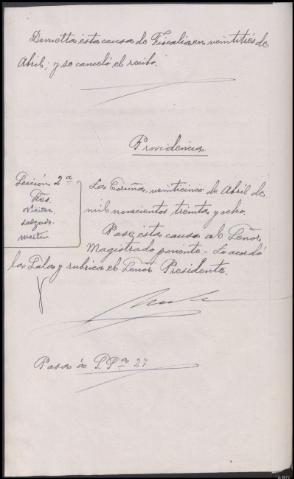 Devuelta esta causa de Fiscalía en veintitrés de
Abril; y se canceló el recibo.
Providencia
Sección 2ª
Sres.
Salgado
La Coruña, veinticinco de Abril de
mil novecientos treinta y ocho.
Pase esta causa al Señor
Magistrado ponente. Lo acordó
la Sala y rubrica el Señor Presidente.
Pasa á P. Pte 27